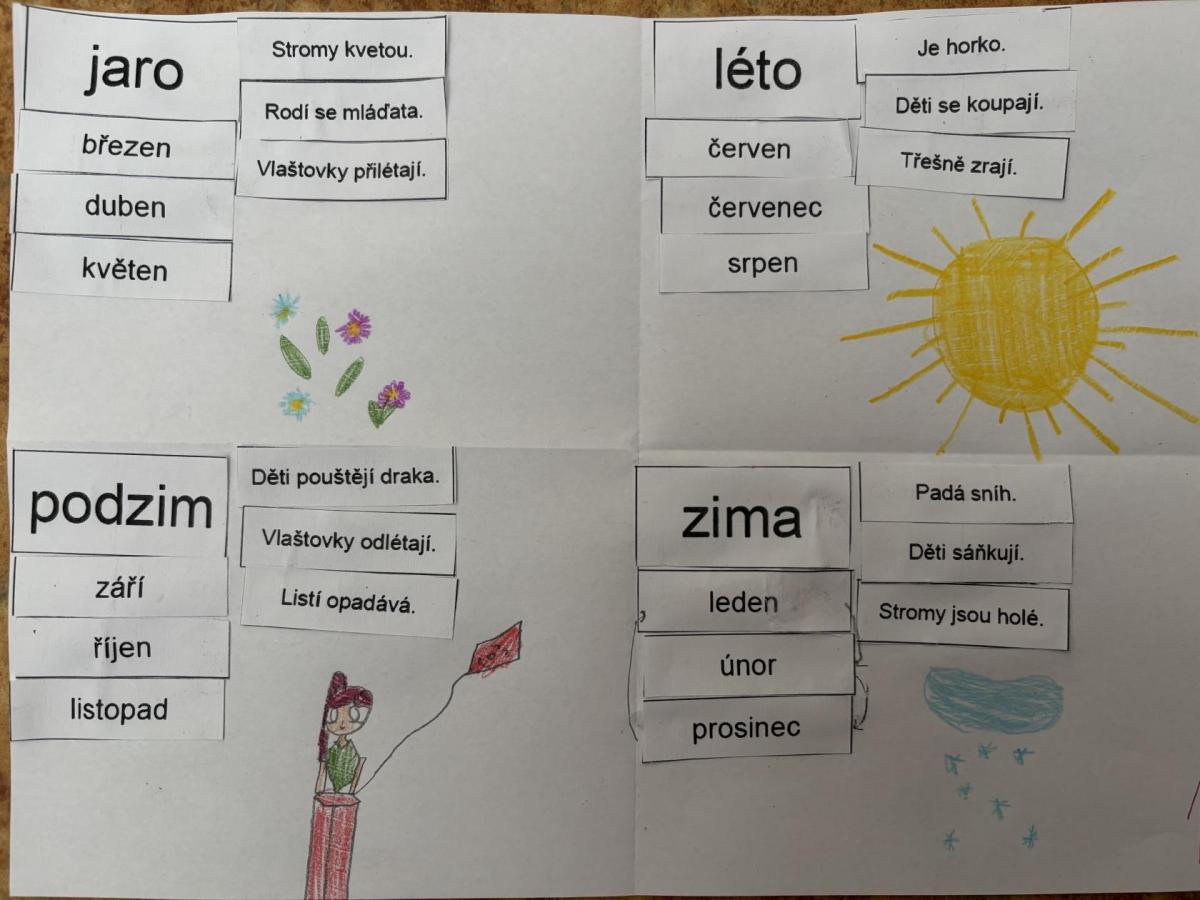 jaro
březen
duben
květen
Stromy kvetou.
Rodí se mláďata.
Vlaštovky přilétají.
léto
červen
červenec
srpen
Je horko.
Děti se koupají.
Třešně zrají.
podzim
září
říjen
listopad
Děti pouštějí draka.
Vlaštovky odlétají.
Listí opadává.
zima
leden
únor
prosinec
Padá sníh.
Děti sáňkují.
Stromy jsou holé.